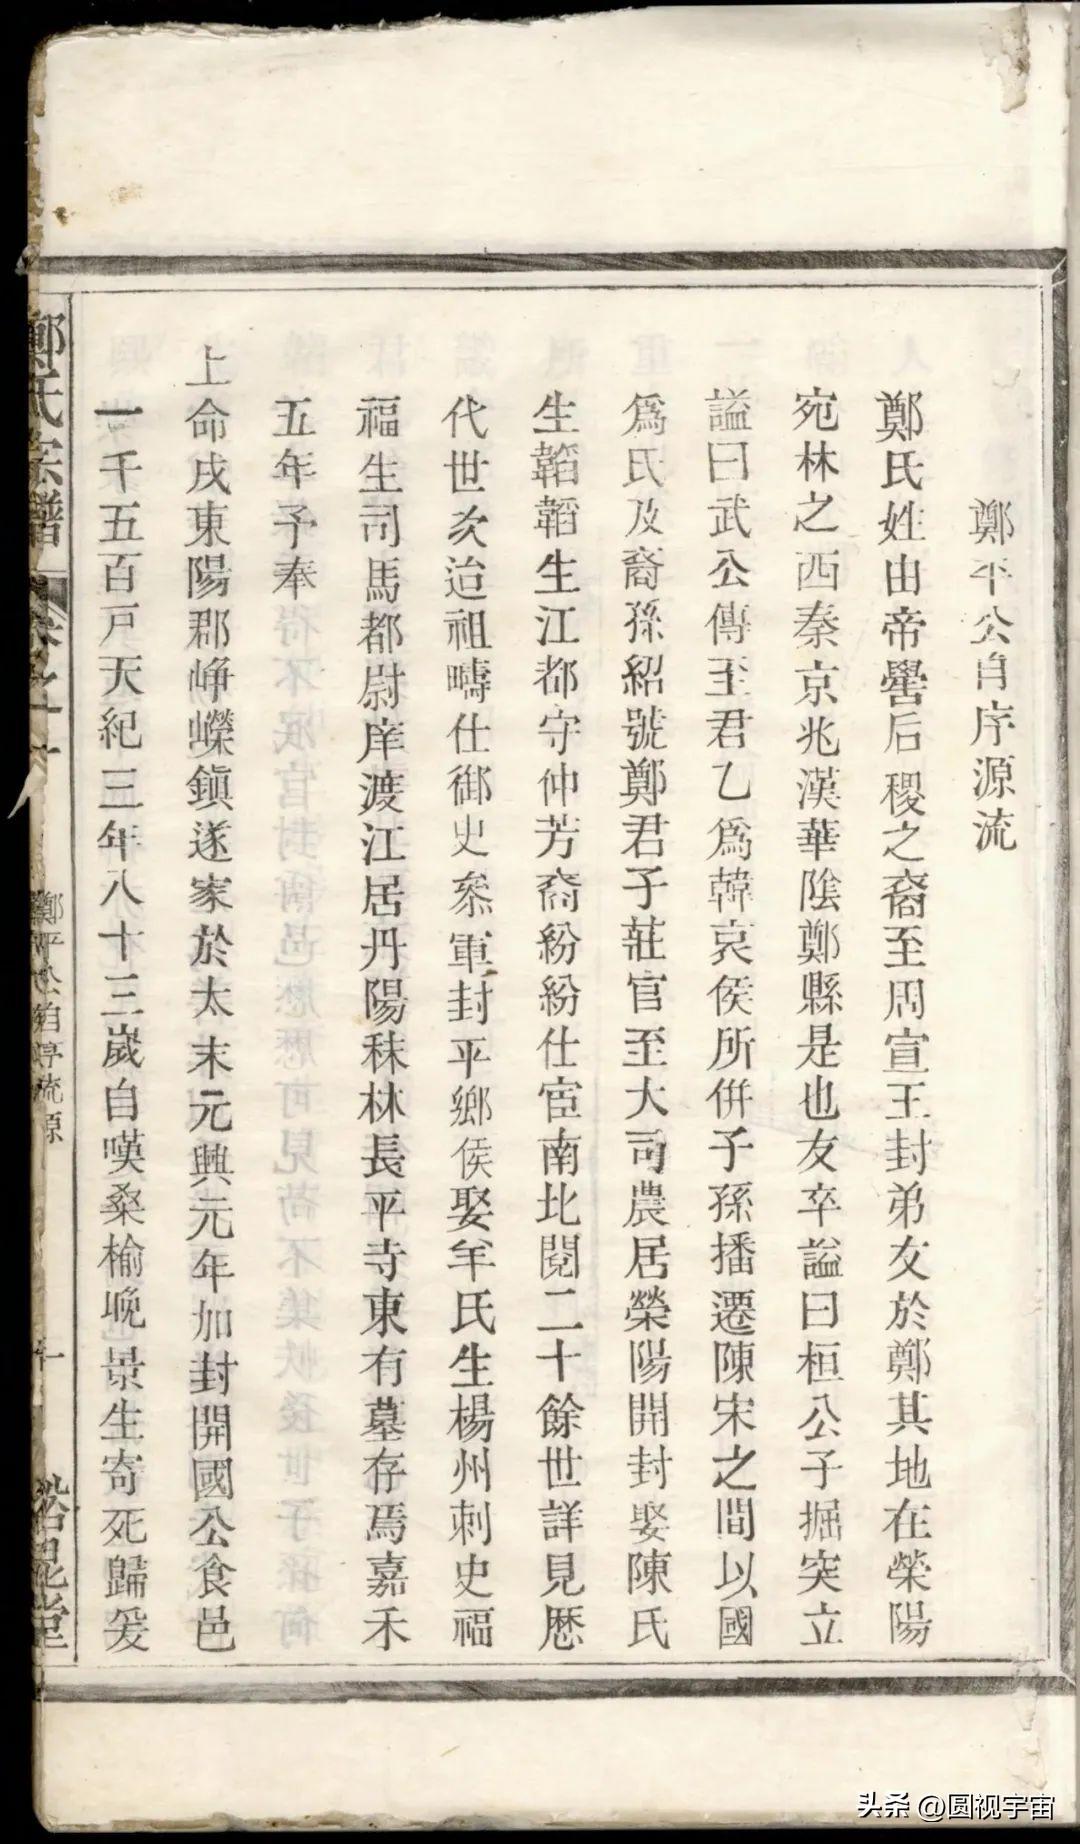 鄭平公自序源流
鄭氏姓由帝嚳后稷之裔至周宣王封弟友於鄭其地在榮陽
宛林之西秦京兆漢華陰鄭縣是也友卒謚曰桓公子掘突立
謚曰武公傳至君乙爲韓哀侯所併子孫播遷陳宋之間以國
爲氏及裔孫紹號鄭君子莊官至大司農居榮陽開封娶陳氏
生韜韜生江都守仲芳裔紛紛仕宦南北閱二十餘世詳見歷
代世次迨祖疇仕御史叅軍封平鄉侯娶羊氏生楊州刺史福
福生司馬都尉庠渡江居丹陽秣林長平寺東有墓存焉嘉禾
五年予奉
上命戍東陽郡崢嶸鎮遂家於太末元興元年加封開國公食邑
一千五百戸天紀三年八十三歲自嘆桑榆晚景生寄死歸爰
鄭氏宗譜
卷之一
鄭平公自序流源
十
裕昆堂
头条 @圆视宇宙